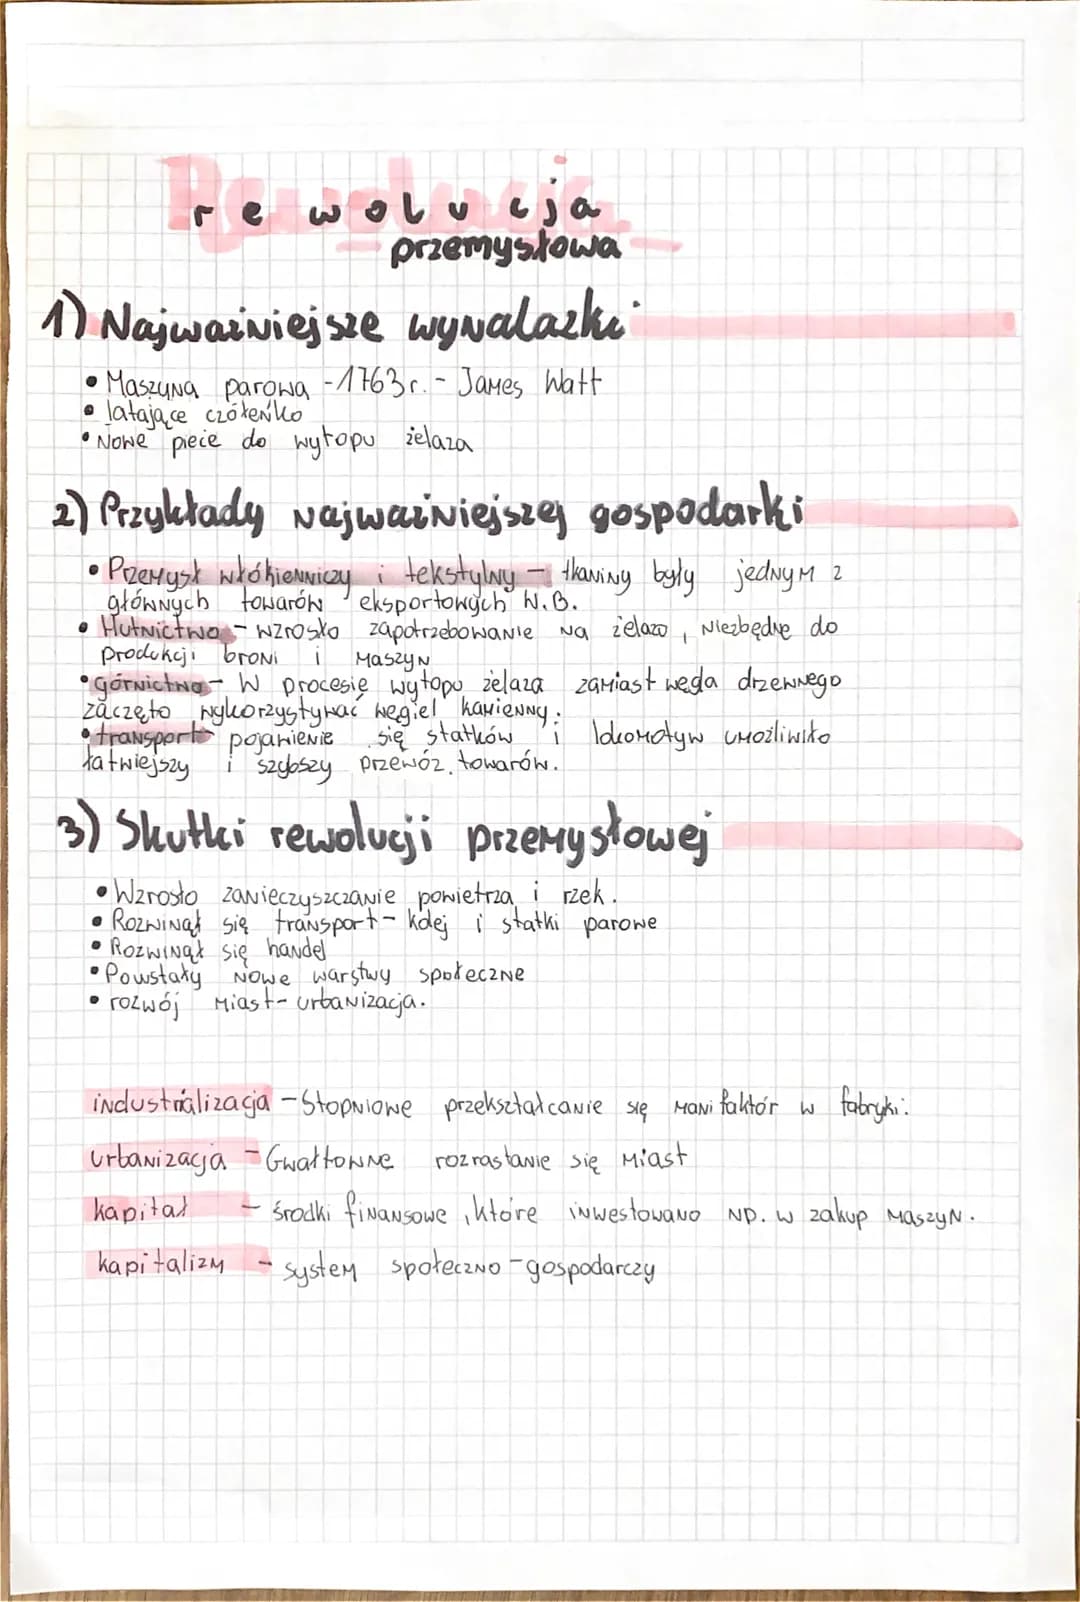 rewolucja
przemysłowa
1) Najważniejsze wynalazki
• Maszyna parowa - 1763r. - James Watt
• latające czółenko
• Nowe piece do wytopu żelaza
2) Przykłady najważniejszej gospodarki
• Przemysł włókienniczy i tekstylny - tkaniny były jednym z
głównych towarów eksportowych W.B.
• Hutnictwo - wzrosło zapotrzebowanie na żelazo, niezbędne do
produkcji broni i maszyn
• górnictwo - W procesie wytopu żelaza zamiast węgla drzewnego
zaczęto wykorzystywać węgiel kamienny.
• transport pojawienie się statków i lokomotyw umożliwiło
łatwiejszy i szybszy przewóz towarów.
3) Skutki rewolucji przemysłowej
• Wzrosło zanieczyszczanie powietrza i rzek.
• Rozwinął się transport - kolej i statki parowe
• Rozwinął się handel
• Powstały nowe warstwy społeczne
• rozwój miast - urbanizacja.
industrializacja - Stopniowe przekształcanie się manifaktór w fabryki.
urbanizacja - Gwałtowne rozrastanie się miast
kapitał - środki finansowe, które inwestowano np. w zakup maszyn.
kapitalizm - system społeczno-gospodarczy